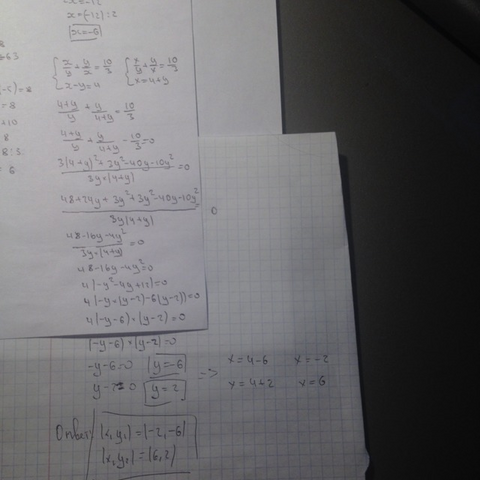 x+(-12)=2
x=-6
{ x/y + y/x = 10/3 { x/y + y/x = 10/3
x-y=4 x=4+y
(4+y)/y + y/(4+y) = 10/3
(4+y)/y + y/(4+y) - 10/3 = 0
(3(4+y)²+3y²-40y-10y²)/(3y×(4+y)) = 0
(48+24y+3y²+3y²-40y-10y²)/(3y(4+y)) = 0
(48-16y-4y²)/(3y×(4+y)) = 0
48-16y-4y²=0
4(-y²-4y+12)=0
4(-y×(y-2)-6(y-2))=0
4(-y-6)×(y-2)=0
(-y-6)×(y-2)=0
-y-6=0 y=-6 => x=4-6 x=-2
y-2=0 y=2 x=4+2 x=6
Ответ: (x,y₁)=(-2,-6)
(x,y₂)=(6,2)